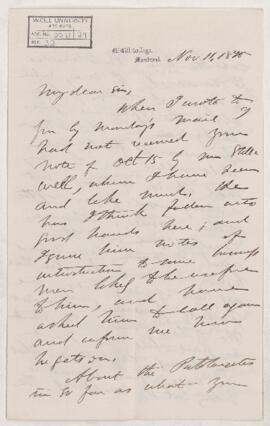 McGILL UNIVERSITY
ARCHIVES
ACC. NO. 2211/
REF. 32
McGill College
Montreal
Nov 11, 18
My dear Sir,
When I wrote to
you by Monday's mail I
had not received your
note of Oct 15 by Mr
, whom I have seen
and like much. He
has I think fallen into
good hands here; and
I gave him notes of
introduction to some business
men likely to be of use
to him, and have
asked him to call again
and inform me how
he gets on.
About the
in so far as what you